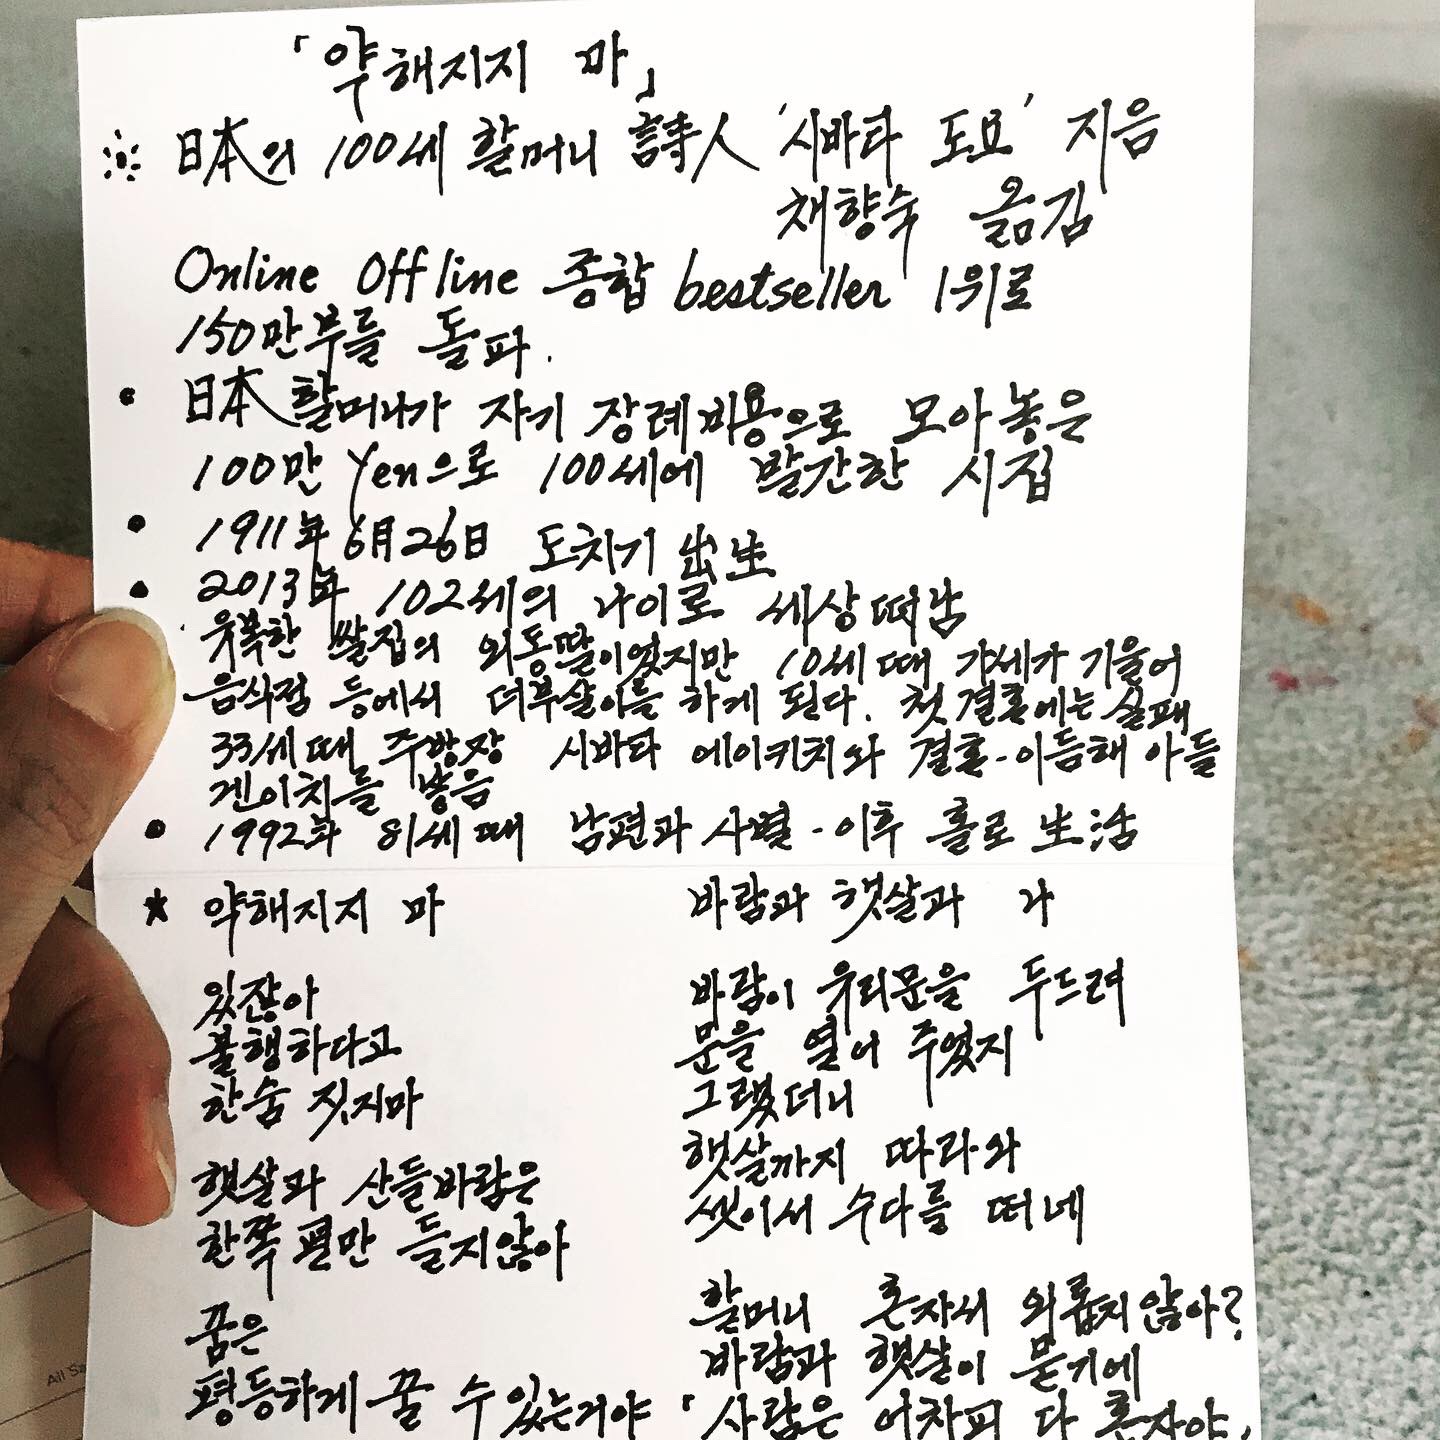 「약해지지 마」
日本의 100세 할머니 詩人 '시바타 도요' 지음
채향숙 옮김
Online Offline 종합 bestseller 1위로
150만부를 돌파.
• 日本 할머니가 자기 장례비용으로 모아놓은
100만 Yen으로 100세에 발간한 시집
• 1911年 6月 26日 도치기 出生
• 2013年 102세의 나이로 세상떠남
유복한 쌀집의 외동딸이었지만 10세때 가세가 기울어
음식점 등에서 더부살이를 하게 된다. 첫 결혼에는 실패
33세때 주방장 시바타 에이키치와 결혼-이듬해 아들
겐이치를 낳음
• 1992年 81세때 남편과 사별-이후 홀로 生活
★ 약해지지 마
있잖아
불행하다고
한숨 짓지마
햇살과 산들바람은
한쪽 편만 들지않아
꿈은
평등하게 꿀 수 있는거야
바람과 햇살과 나
바람이 유리문을 두드려
문을 열어 주었지
그랬더니
햇살까지 따라와
셋이서 수다를 떠네
할머니 혼자서 외롭지않아?
바람과 햇살이 묻기에
「사람은 어차피 다 혼자야」
All